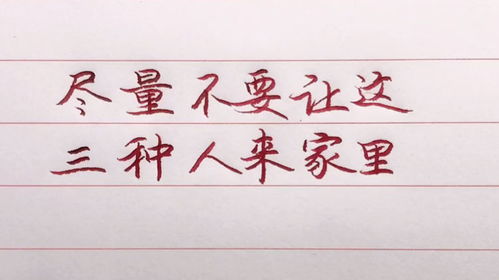 尽量不要让这
三种人来家里